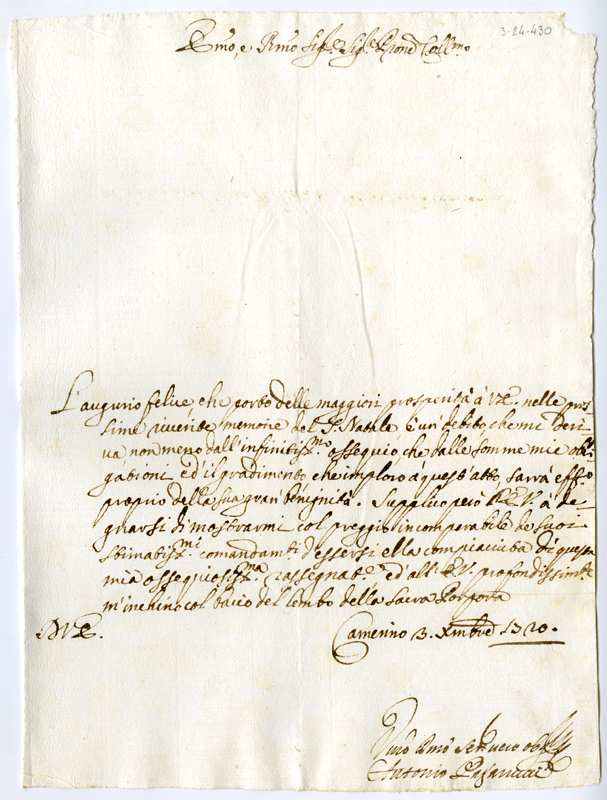 3-24-430
Emo, e Rmo Sigre Sigre Prone Collmo
L'augurio felice, che porto delle maggiori prosperità à V.E. nelle pros-
sime riverite memorie del S. Natale è un debito, che mi deri-
va non meno dall'infinitissmo ossequio, che dalle somme mie obli-
gationi, ed il gradimento, che imploro à quest'atto, sarrà effo
proprio della sua gran benignità. Supplico però l'E.V. à de-
gnarsi di mostrarmi col preggio incomparabile de suoi
stimatissmi comandamti d'essersi ella compiaciuta di questa
mia ossequiosissma rassegnate ed all'E.V. profondissimte
m'inchino col bacio del lembo della Sacra Porpora
D.V.E.
Camerino 3. Xmbre 1720.
Umo Dmo Servre
Antonio